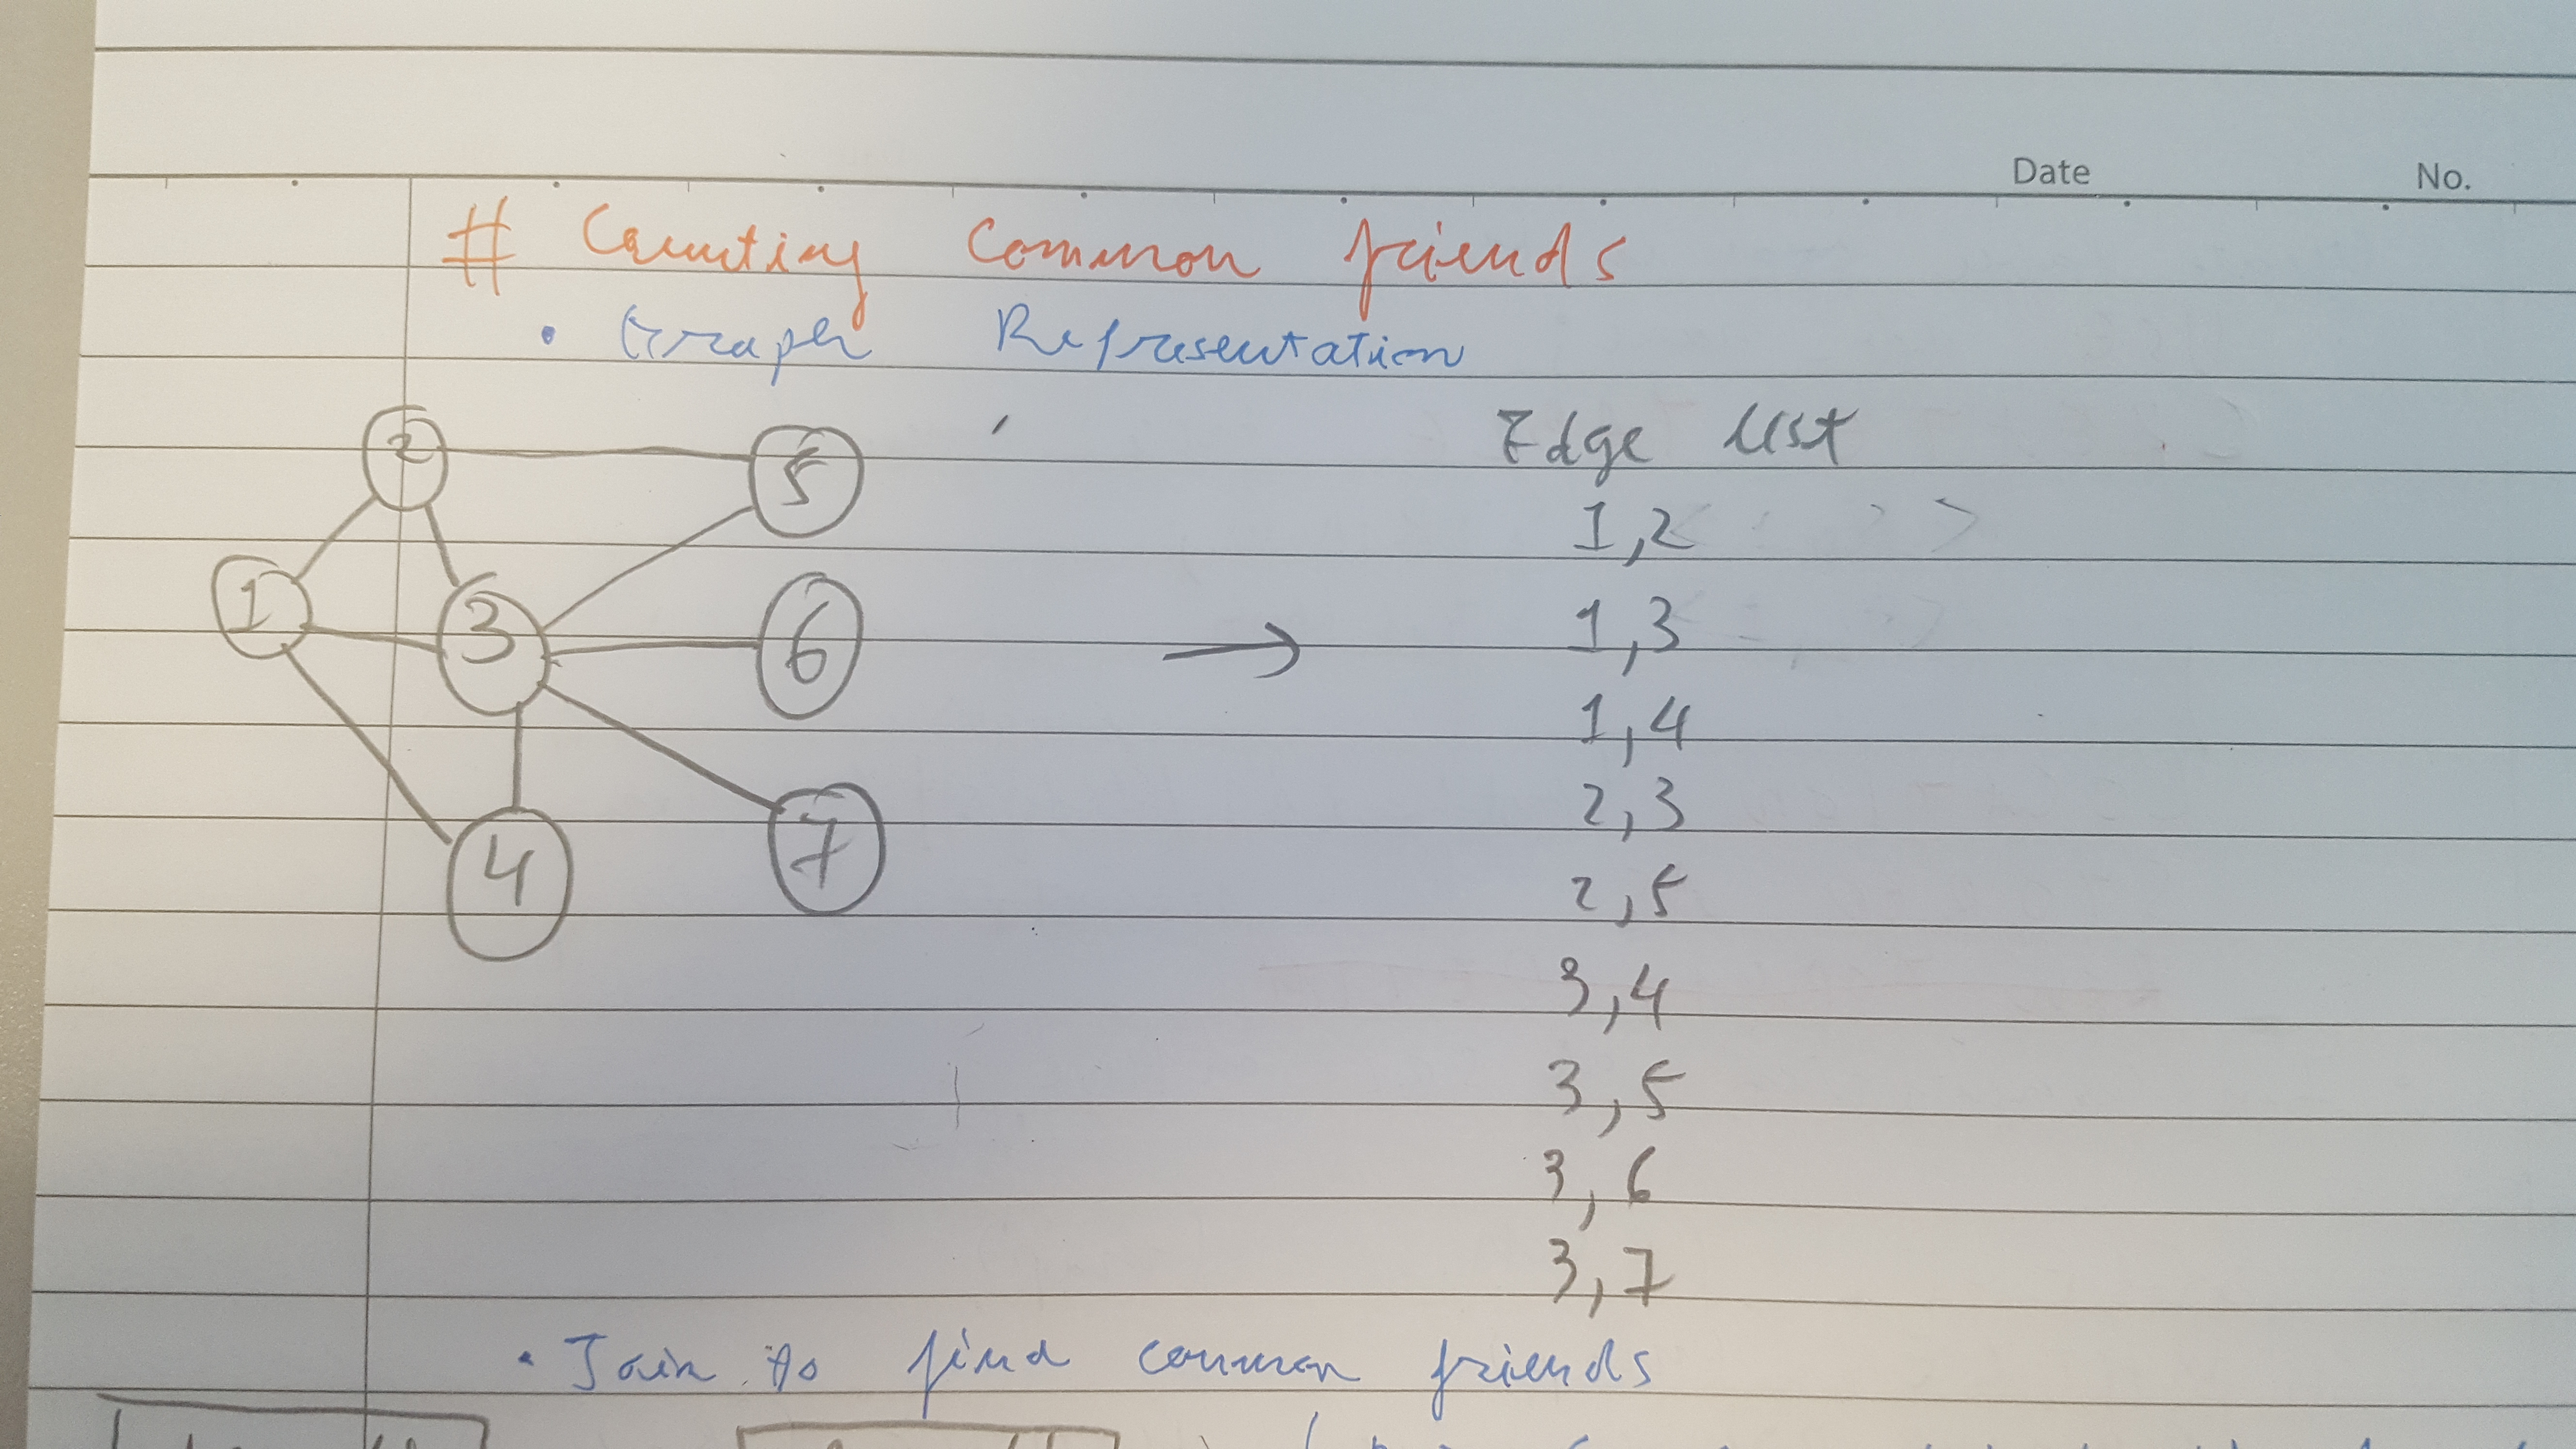 Date No.
# Counting Common friends
• Graph Representation
Edge list
1,2
1,3
1,4
2,3
2,5
3,4
3,5
3,6
3,7
1
2
3
4
5
6
7
• Join to find common friends